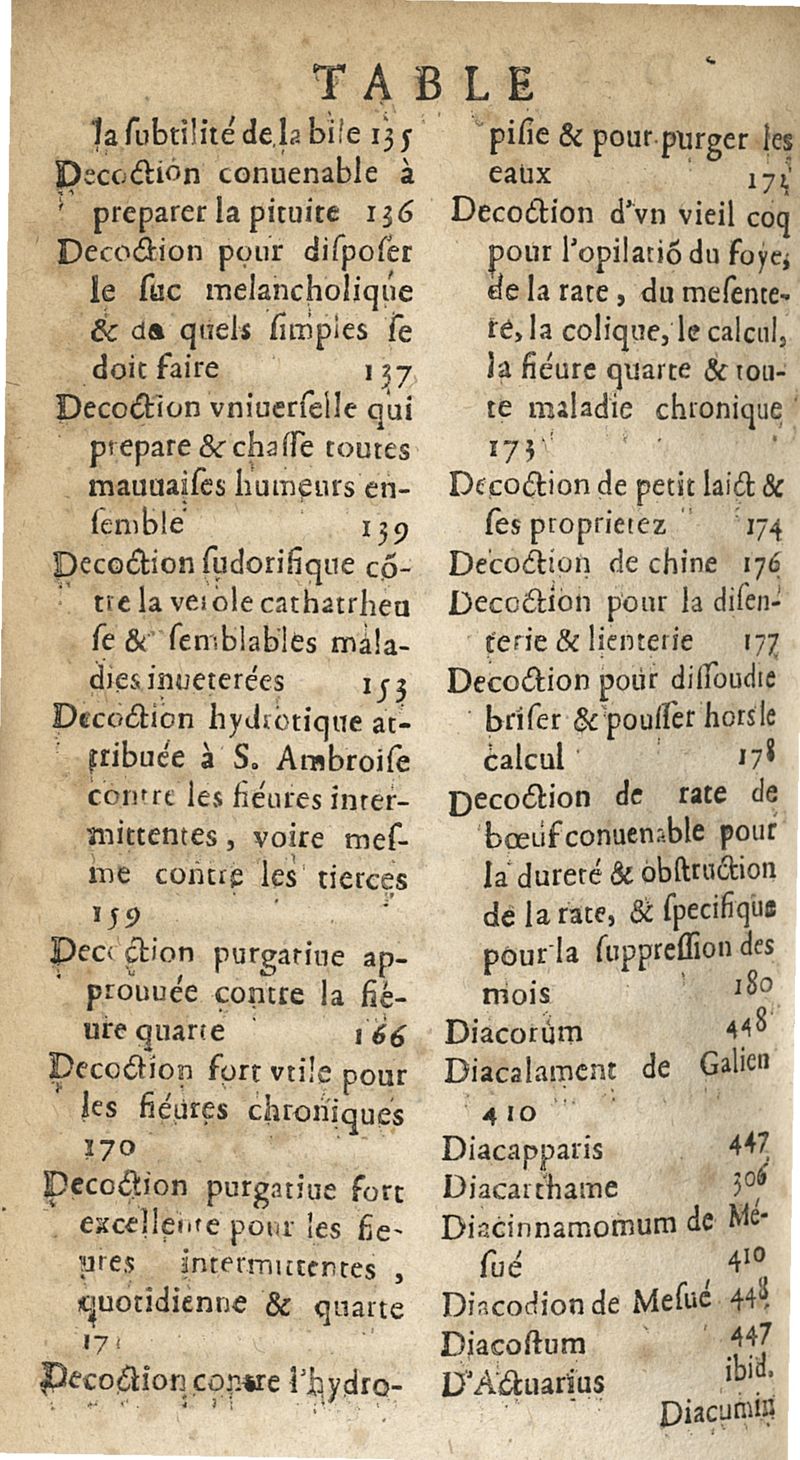 TABLE
la ſubtilité de la bile 135
Decoction conuenable à
preparer la pituite 136
Decoction pour diſpoſer
le ſuc melancholique
& de quels ſimples ſe
doit faire 137
Decoction vniuerſelle qui
prepare & chaſſe toutes
mauuaiſes humeurs en-
ſemble 139
Decoction ſudorifique cõ-
tre la verole cathatrheu
ſe & ſemblables mala-
dies inueterées 153
Decoction hydrotique at-
tribuée à S. Ambroiſe
contre les fiéures inter-
mittentes, voire meſ-
me contre les tierces
159
Decoction purgatiue ap-
prouuée contre la fié-
ure quarte 166
Decoction fort vtile pour
les fiéures chroniques
170
Decoction purgatiue fort
excellente pour les fie-
ures intermittentes,
quotidienne & quarte
171
Decoction contre l'hydro-
piſie & pour purger les
eaux
Decoction d'vn vieil coq
pour l'opilatiõ du foye,
de la rate, du meſente-
re, la colique, le calcul,
la fiéure quarte & tou-
te maladie chronique
173
Decoction de petit laict &
ſes proprietez 174
Decoction de chine 176
Decoction pour la diſen-
terie & lienterie 177
Decoction pour diſſoudre
briſer & pouſſer hors le
calcul 178
Decoction de rate de
bœuf conuenable pour
la dureté & obſtruction
de la rate, & ſpecifique
pour la ſuppreſſion des
mois 180
Diacorum 448
Diacalament de Galien
410
Diacapparis 447
Diacarthame 306
Diacinnamomum de Me-
ſué 410
Diacodion de Meſué 448
Diacoſtum 447
D'Actuarius ibid.
Diacumin